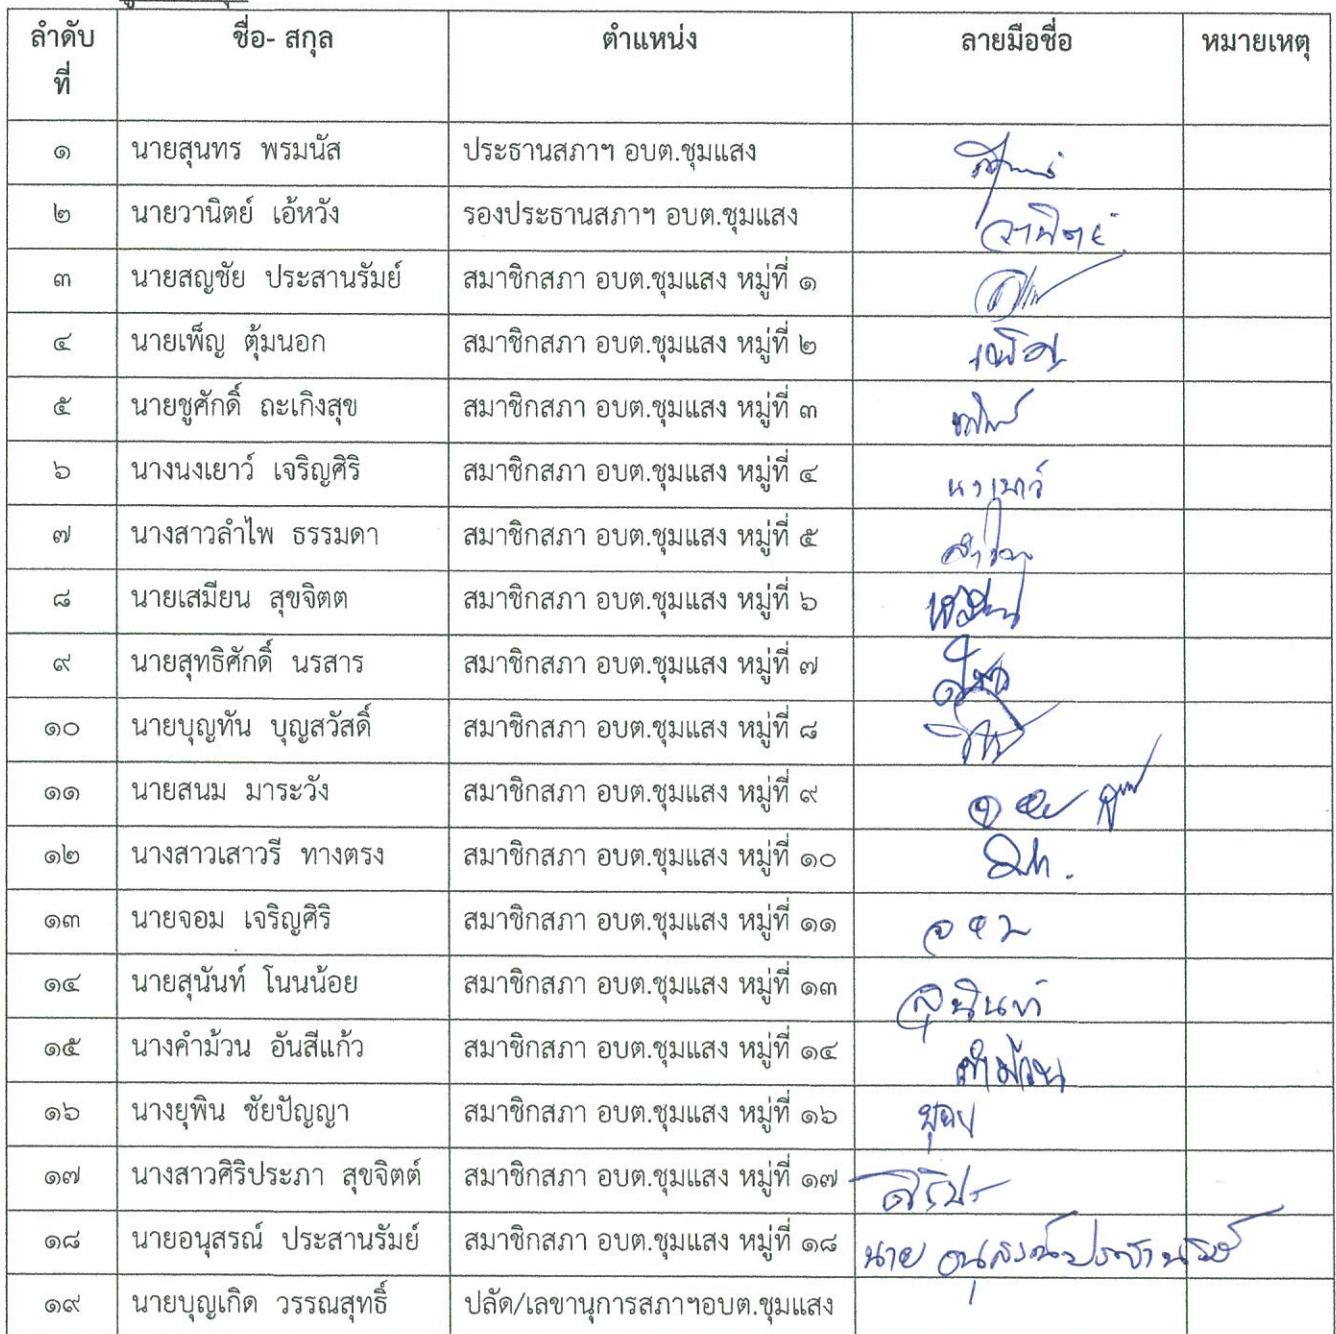 ลำดับที่ ชื่อ- สกุล ตำแหน่ง ลายมือชื่อ หมายเหตุ
๑ นายสุนทร พรมนัส ประธานสภาฯ อบต.ชุมแสง
๒ นายวานิตย์ เอ้หวัง รองประธานสภาฯ อบต.ชุมแสง วานิตย์
๓ นายสญชัย ประสานรัมย์ สมาชิกสภา อบต.ชุมแสง หมู่ที่ ๑
๔ นายเพ็ญ ตุ้มนอก สมาชิกสภา อบต.ชุมแสง หมู่ที่ ๒
๕ นายชูศักดิ์ ถะเกิงสุข สมาชิกสภา อบต.ชุมแสง หมู่ที่ ๓
๖ นางนงเยาว์ เจริญศิริ สมาชิกสภา อบต.ชุมแสง หมู่ที่ ๔ นงเยาว์
๗ นางสาวลำไพ ธรรมดา สมาชิกสภา อบต.ชุมแสง หมู่ที่ ๕ ลำไพ
๘ นายเสมียน สุขจิตต สมาชิกสภา อบต.ชุมแสง หมู่ที่ ๖
๙ นายสุทธิศักดิ์ นรสาร สมาชิกสภา อบต.ชุมแสง หมู่ที่ ๗
๑๐ นายบุญทัน บุญสวัสดิ์ สมาชิกสภา อบต.ชุมแสง หมู่ที่ ๘
๑๑ นายสนม มาระวัง สมาชิกสภา อบต.ชุมแสง หมู่ที่ ๙
๑๒ นางสาวเสาวรี ทางตรง สมาชิกสภา อบต.ชุมแสง หมู่ที่ ๑๐
๑๓ นายจอม เจริญศิริ สมาชิกสภา อบต.ชุมแสง หมู่ที่ ๑๑ จอม
๑๔ นายสุนันท์ โนนน้อย สมาชิกสภา อบต.ชุมแสง หมู่ที่ ๑๓ สุนันท์
๑๕ นางคำม้วน อันสีแก้ว สมาชิกสภา อบต.ชุมแสง หมู่ที่ ๑๔ คำม้วน
๑๖ นางยุพิน ชัยปัญญา สมาชิกสภา อบต.ชุมแสง หมู่ที่ ๑๖
๑๗ นางสาวศิริประภา สุขจิตต์ สมาชิกสภา อบต.ชุมแสง หมู่ที่ ๑๗
๑๘ นายอนุสรณ์ ประสานรัมย์ สมาชิกสภา อบต.ชุมแสง หมู่ที่ ๑๘ นาย อนุสรณ์ ประสานรัมย์
๑๙ นายบุญเกิด วรรณสุทธิ์ ปลัด/เลขานุการสภาฯอบต.ชุมแสง